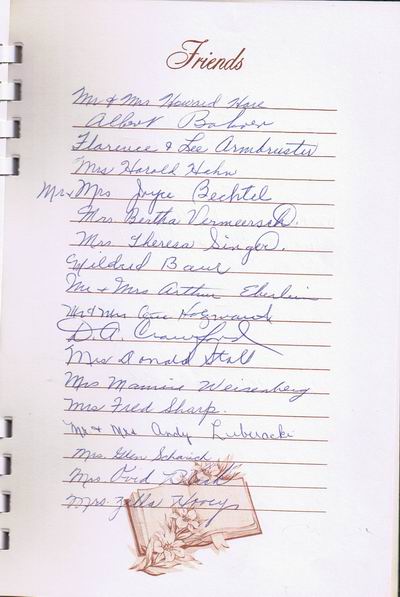 Friends
Mr & Mrs Howard Hore
Albert Bohrer
Florence & Lee Armbruster
Mrs Harold Hahn
Mr & Mrs Joyce Bechtel
Mrs. Bertha Vermeersch.
Mrs. Theresa Singer.
Mildred Baur
Mr & Mrs Arthur Eberlein
Mr & Mrs
D. A. Crawford
Mrs Donald Stoll
Mrs Mamine Weisenberg
Mrs Fred Sharp.
Mr & Mrs Andy Luberacki
Mrs. Glen Schaich
Mrs Ovid
Mrs. Zella Hovey